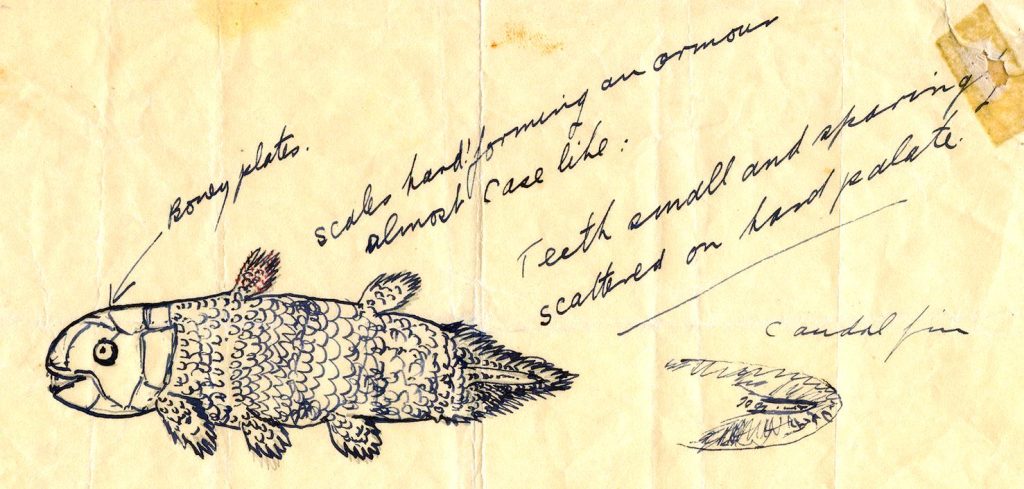 Boney plates.
scales hard! forming an armour
almost case like:
Teeth small and sparing
scattered on hard palate.
Caudal fin